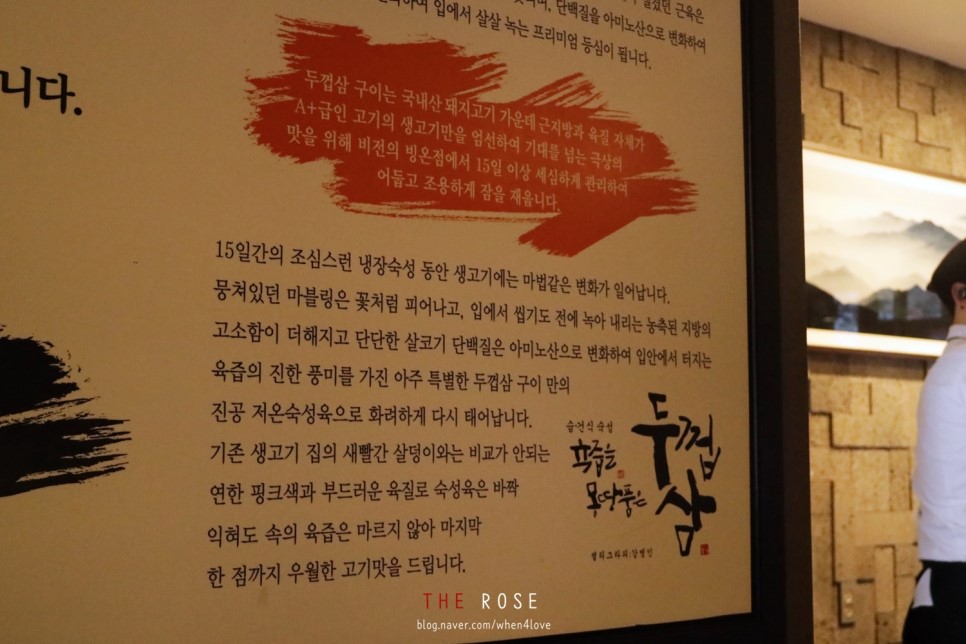 니다.
단백질을 아미노산으로 변화하여
입에서 살살 녹는 프리미엄 등심이 됩니다.
두껍삼 구이는 국내산 돼지고기 가운데 근지방과 육질 자체가
A+급인 고기의 생고기만을 엄선하여 기대를 넘는 극상의
맛을 위해 비전의 빙온점에서 15일 이상 세심하게 관리하여
어둡고 조용하게 잠을 재웁니다.
15일간의 조심스런 냉장숙성 동안 생고기에는 마법같은 변화가 일어납니다.
뭉쳐있던 마블링은 꽃처럼 피어나고, 입에서 씹기도 전에 녹아 내리는 농축된 지방의
고소함이 더해지고 단단한 살코기 단백질은 아미노산으로 변화하여 입안에서 터지는
육즙의 진한 풍미를 가진 아주 특별한 두껍삼 구이 만의
진공 저온숙성육으로 화려하게 다시 태어납니다.
기존 생고기 집의 새빨간 살덩이와는 비교가 안되는
연한 핑크색과 부드러운 육질로 숙성육은 바짝
익혀도 속의 육즙은 마르지 않아 마지막
한 점까지 우월한 고기맛을 드립니다.
숙성
육즙을
두껍삼
THE ROSE
blog.naver.com/when4love